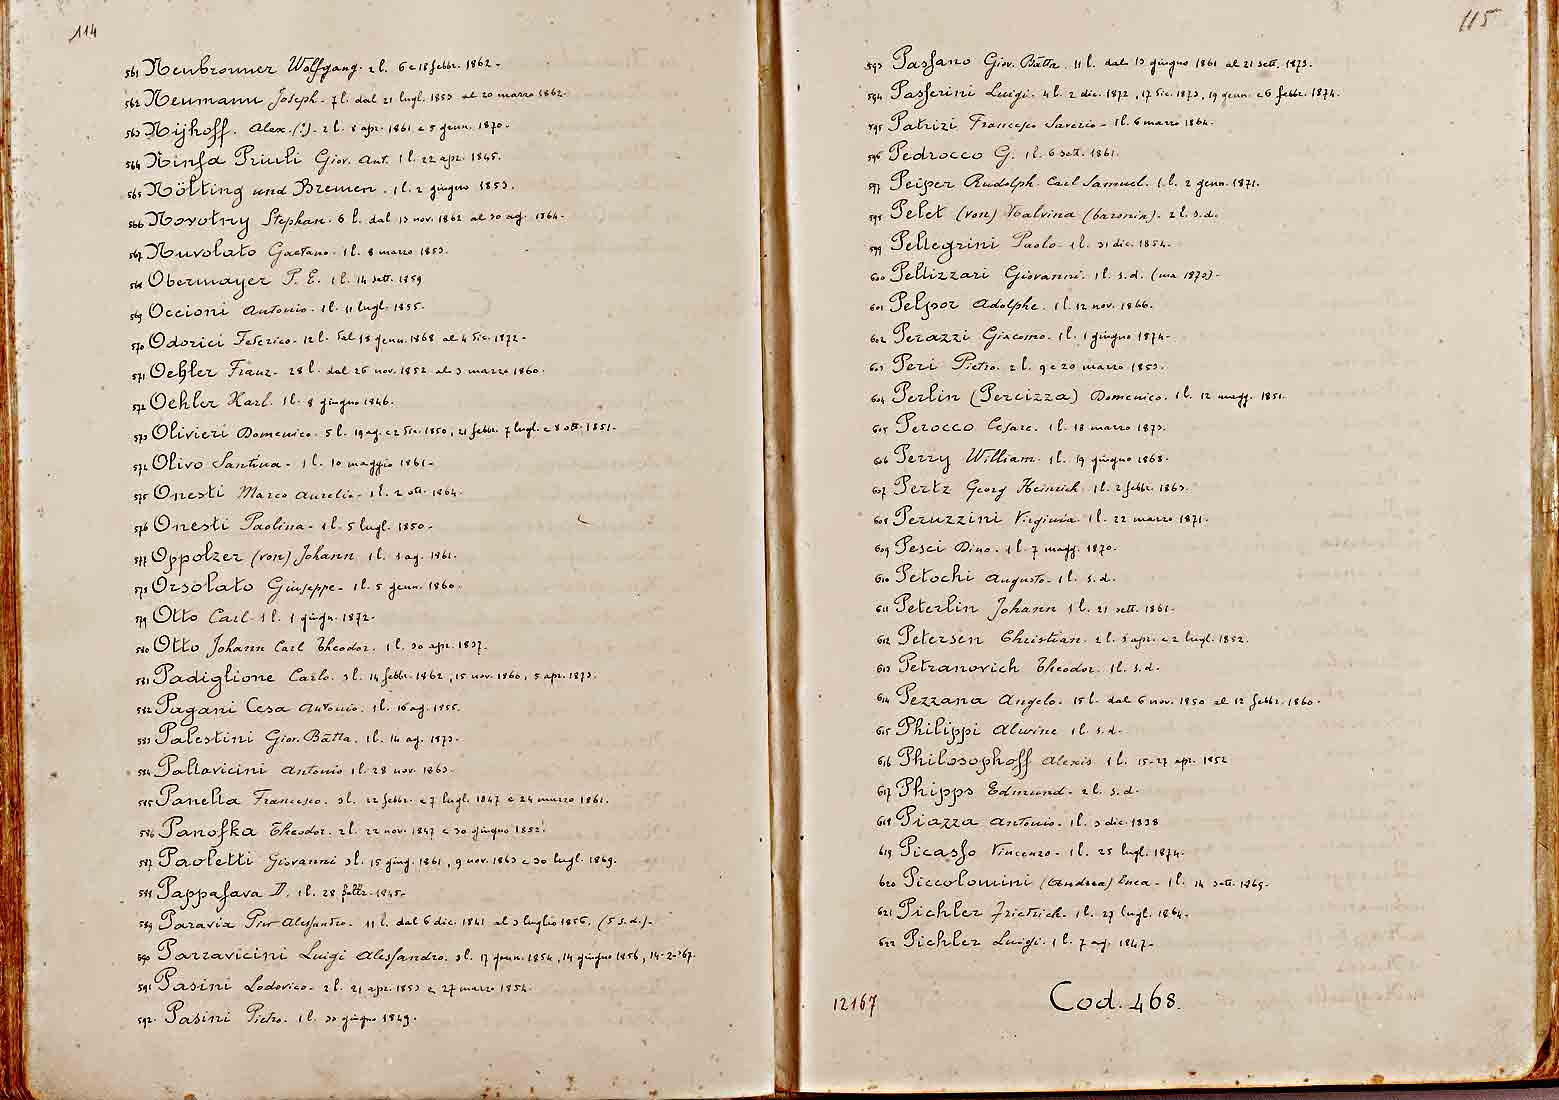 114
561 Neubronner Wolfgang. 2 l. 6 e 18 febbr. 1862.
562 Neumann Joseph. 7 l. dal 21 lugl. 1853 al 20 marzo 1862.
563 Nijhoff. Alex. (?). 2 l. 8 apr. 1861 e 5 genn. 1870.
564 Ninfa Priuli Giov. Ant. 1 l. 22 apr. 1845.
565 Nölting und Bremen. 1 l. 2 giugno 1853.
566 Novotny Stephan. 6 l. dal 13 nov. 1862 al 30 ag. 1864.
567 Nuvolato Gaetano. 1 l. 8 marzo 1853.
568 Obermayer P. E. 1 l. 14 sett. 1859
569 Occioni Antonio. 1 l. 11 lugl. 1855.
570 Odorici Federico. 12 l. dal 18 genn. 1868 al 4 dic. 1872.
571 Oehler Franz. 28 l. dal 26 nov. 1852 al 3 marzo 1860.
572 Oehler Karl. 1 l. 8 giugno 1846.
573 Olivieri Domenico. 5 l. 19 ag. e 2 dic. 1850, 21 febbr. 7 lugl. e 8 ott. 1851.
574 Olivo Santina. 1 l. 10 maggio 1861.
575 Onesti Marco Aurelio. 1 l. 2 ott. 1864.
576 Onesti Paolina. 1 l. 5 lugl. 1850.
577 Oppolzer (von) Johann 1 l. 1 ag. 1861.
578 Orsolato Giuseppe. 1 l. 5 genn. 1860.
579 Otto Carl. 1 l. 1 giugn. 1872.
580 Otto Johann Carl Theodor. 1 l. 30 apr. 1837.
581 Padiglione Carlo. 3 l. 14 febbr. 1862, 15 nov. 1860, 5 apr. 1873.
582 Pagani Cesa Antonio. 1 l. 16 ag. 1855.
583 Palestini Giov. Batta. 1 l. 14 ag. 1873.
584 Pallavicini Antonio 1 l. 28 nov. 1863.
585 Panella Francesco. 3 l. 12 febbr. e 7 lugl. 1847 e 24 marzo 1861.
586 Panofka Theodor. 2 l. 22 nov. 1847 e 30 giugno 1852.
587 Paoletti Giovanni 3 l. 15 giug. 1861, 9 nov. 1863 e 30 lugl. 1869.
588 Pappafava D. 1 l. 28 febbr. 1845.
589 Paravia Pier Alessandro. 11 l. dal 6 dic. 1841 al 3 luglio 1856. (5 s.d.).
590 Parravicini Luigi Alessandro. 3 l. 17 genn. 1854, 14 giugno 1856, 14-2-'67.
591 Pasini Lodovico. 2 l. 21 apr. 1853 e 27 marzo 1854.
592. Pasini Pietro. 1 l. 30 giugno 1849.
115
593 Passano Giov. Batta. 11 l. dal 13 giugno 1861 al 21 sett. 1873.
594 Passerini Luigi. 4 l. 2 dic. 1872, 17 dic. 1873, 19 genn. e 6 febbr. 1874.
595 Patrizi Francesco Saverio. 1 l. 6 marzo 1864.
596 Pedrocco G. 1 l. 6 sett. 1861.
597 Peiper Rudolph Carl Samuel. 1 l. 2 genn. 1871.
598 Pelet (von) Malvina (baronin). 2 l. s.d.
599 Pellegrini Paolo. 1 l. 31 dic. 1854.
600 Pellizzari Giovanni. 1 l. s.d. (ma 1873).
601 Pelpor Adolphe. 1 l. 12 nov. 1866.
602 Perazzi Giacomo. 1 l. 1 giugno 1874.
603 Peri Pietro. 2 l. 9 e 20 marzo 1853.
604 Perlin (Percizza) Domenico. 1 l. 12 magg. 1851.
605 Perocco Cesare. 1 l. 18 marzo 1873.
606 Perry William. 1 l. 19 giugno 1868.
607 Pertz Georg Heinrich 1 l. 2 febbr. 1863.
608 Peruzzini Virginia 1 l. 22 marzo 1871.
609 Pesci Dino. 1 l. 7 magg. 1870.
610 Petochi Augusto. 1 l. s.d.
611 Peterlin Johann 1 l. 21 sett. 1861.
612 Petersen Christian. 2 l. 3 apr. e 2 lugl. 1852.
613 Petranovich Theodor. 1 l. s.d.
614 Pezzana Angelo. 15 l. dal 6 nov. 1850 al 12 febbr. 1860.
615 Philippi Alwine 1 l. s.d.
616 Philosophoff Alexis 1 l. 15-27 apr. 1852
617 Phipps Edmund. 2 l. s.d.
618 Piazza Antonio. 1 l. 3 dic. 1838
619 Picasso Vincenzo. 1 l. 25 lugl. 1874.
620 Piccolomini (Andrea) Enea. 1 l. 14 sett. 1869.
621 Pichler Friedrich. 1 l. 27 lugl. 1864.
622 Pichler Luigi. 1 l. 7 ag. 1847.
12167 Cod. 468.